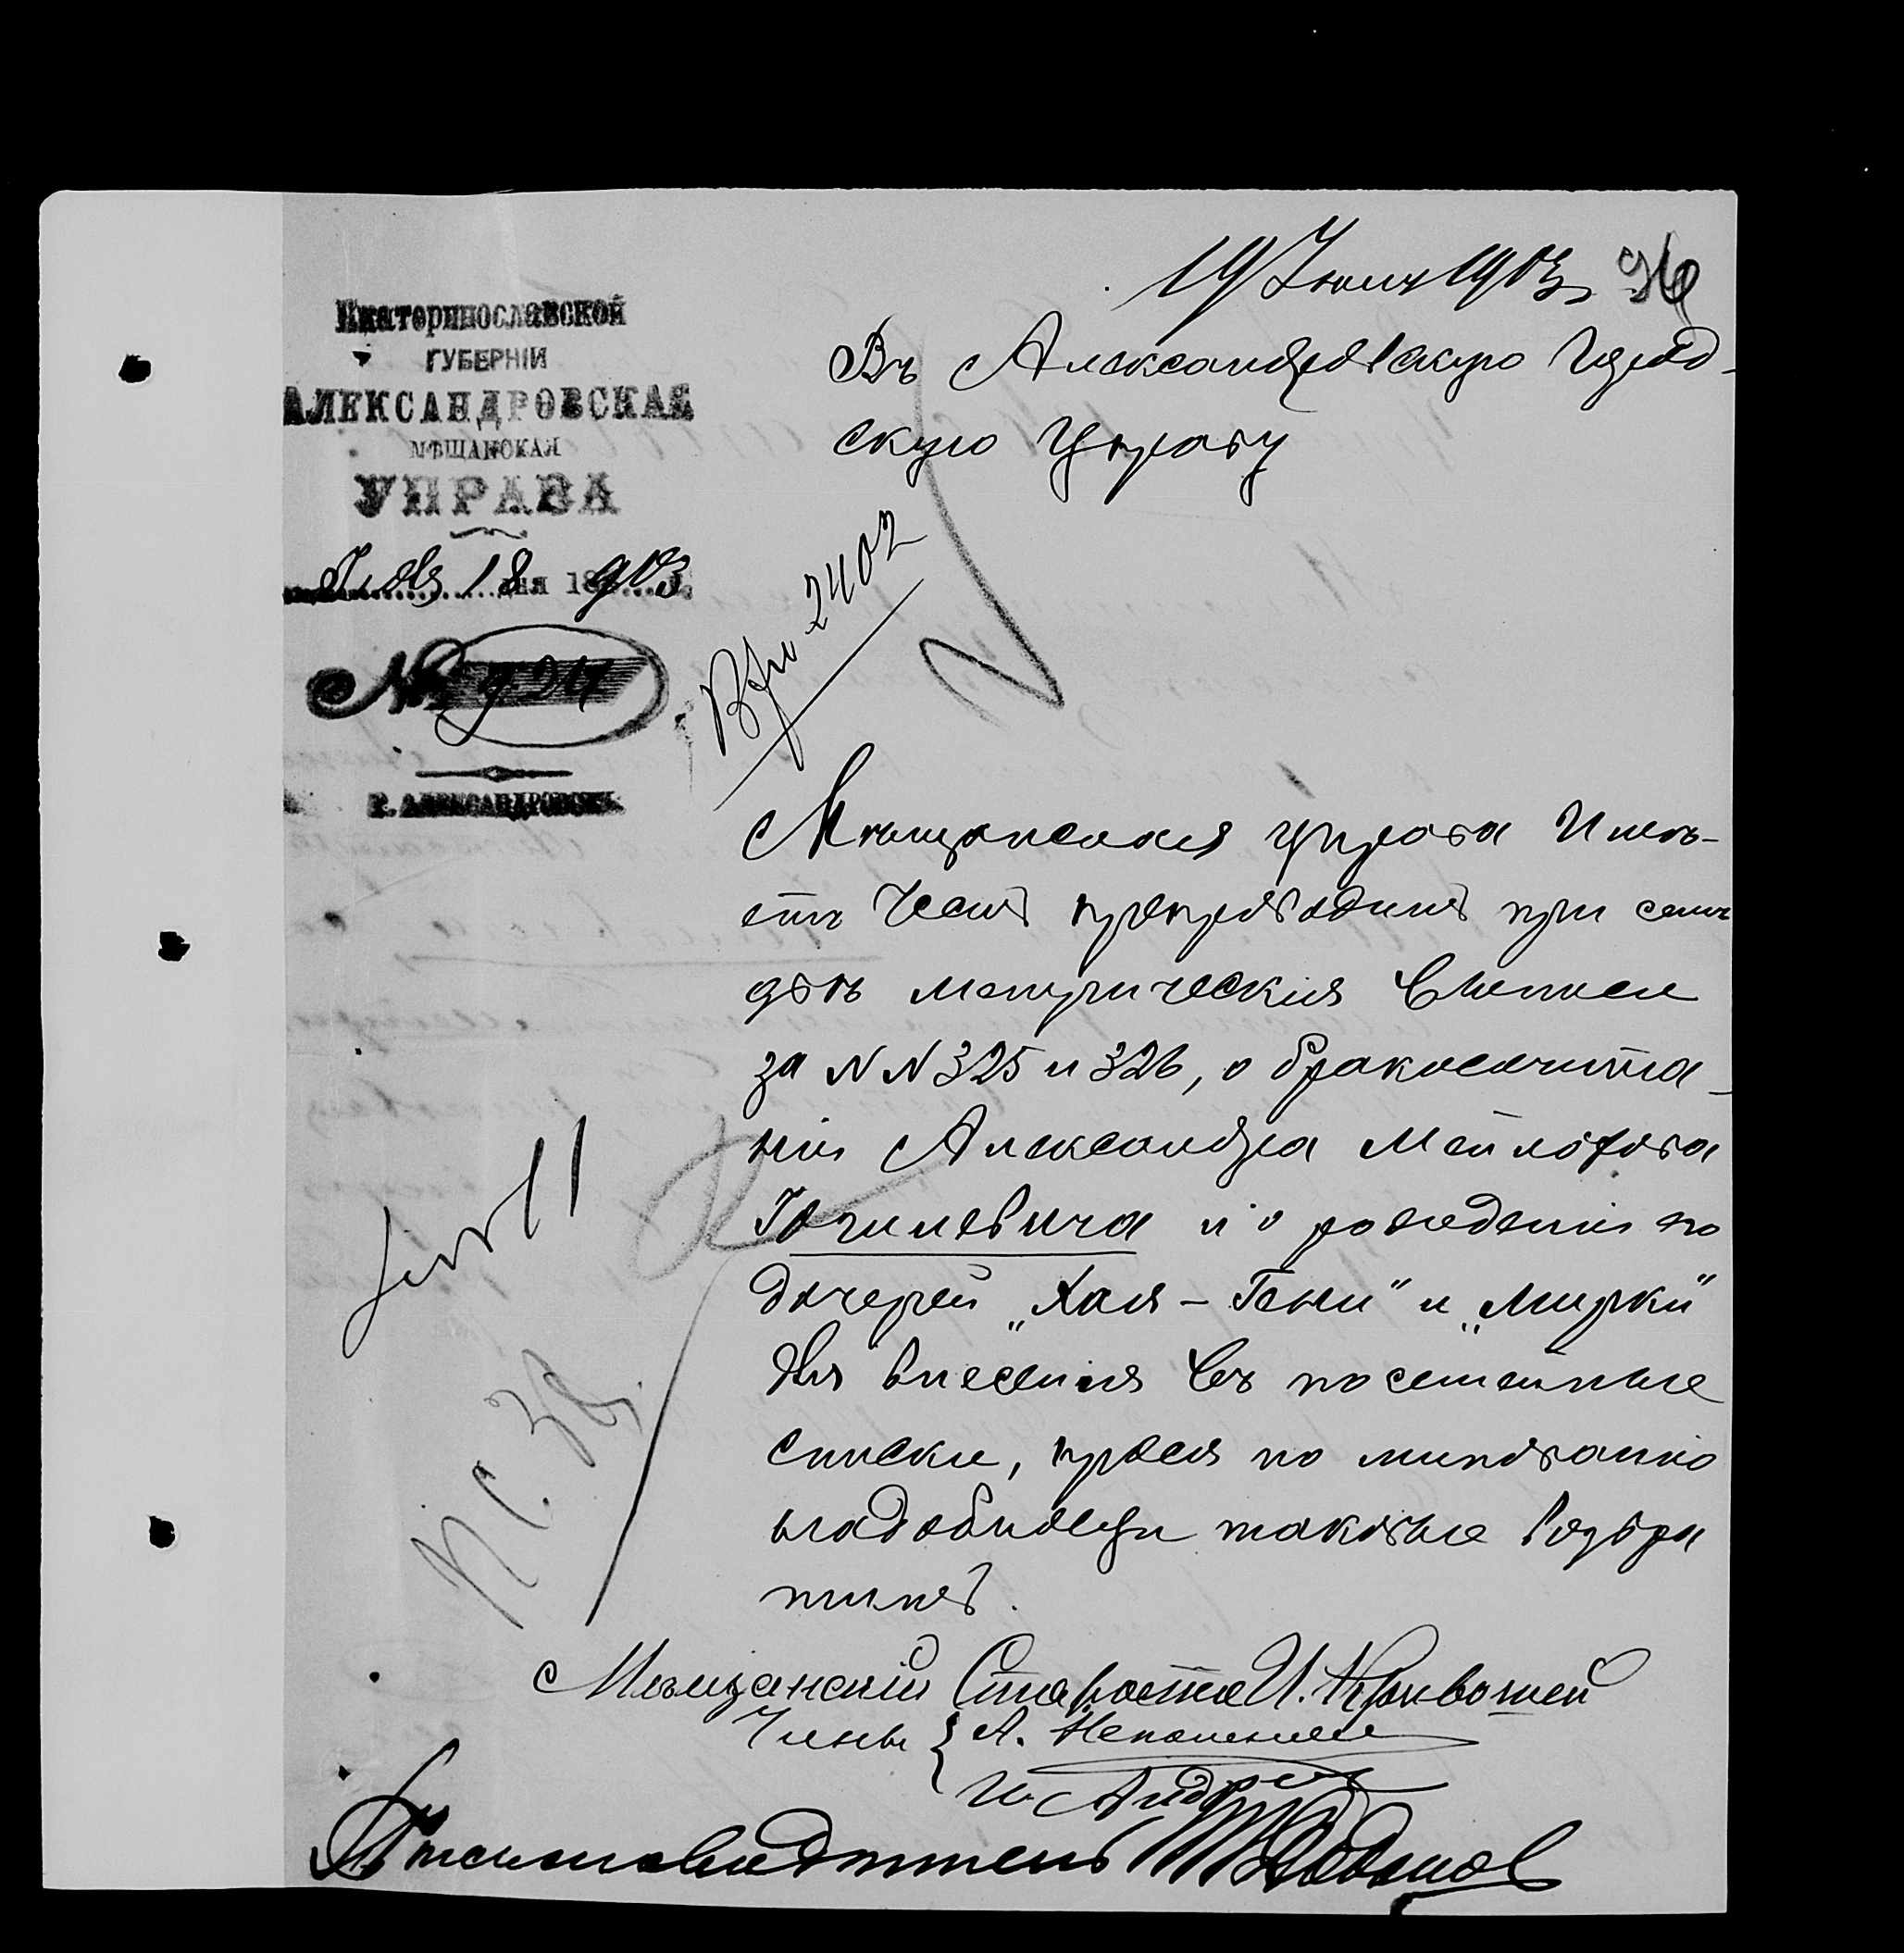 19 Іюня 1903 г. 96
Екатеринославской
ГУБЕРНІИ
АЛЕКСАНДРОВСКАЯ
МѢЩАНСКАЯ
УПРАВА
18 дня 18 903
№ 924
Г. АЛЕКСАНДРОВСКЪ
Въ Александровскую Город-
скую Управу
2402
Мѣщанская управа Имѣ-
етъ честь препроводить при семъ
двѣ метрическія выписи
за NN 325 и 326, о бракосочета-
ніи Александра Мейлофова
и о рожденіи его
дочерей „Хая-Гени" и „Мирки"
для внесенія въ посемейные
списки, прося по минованію
надобности таковые возвра
тить.
Мѣщанскій Староста И. Кривошей
Члены { А.
И.
Письмоводитель